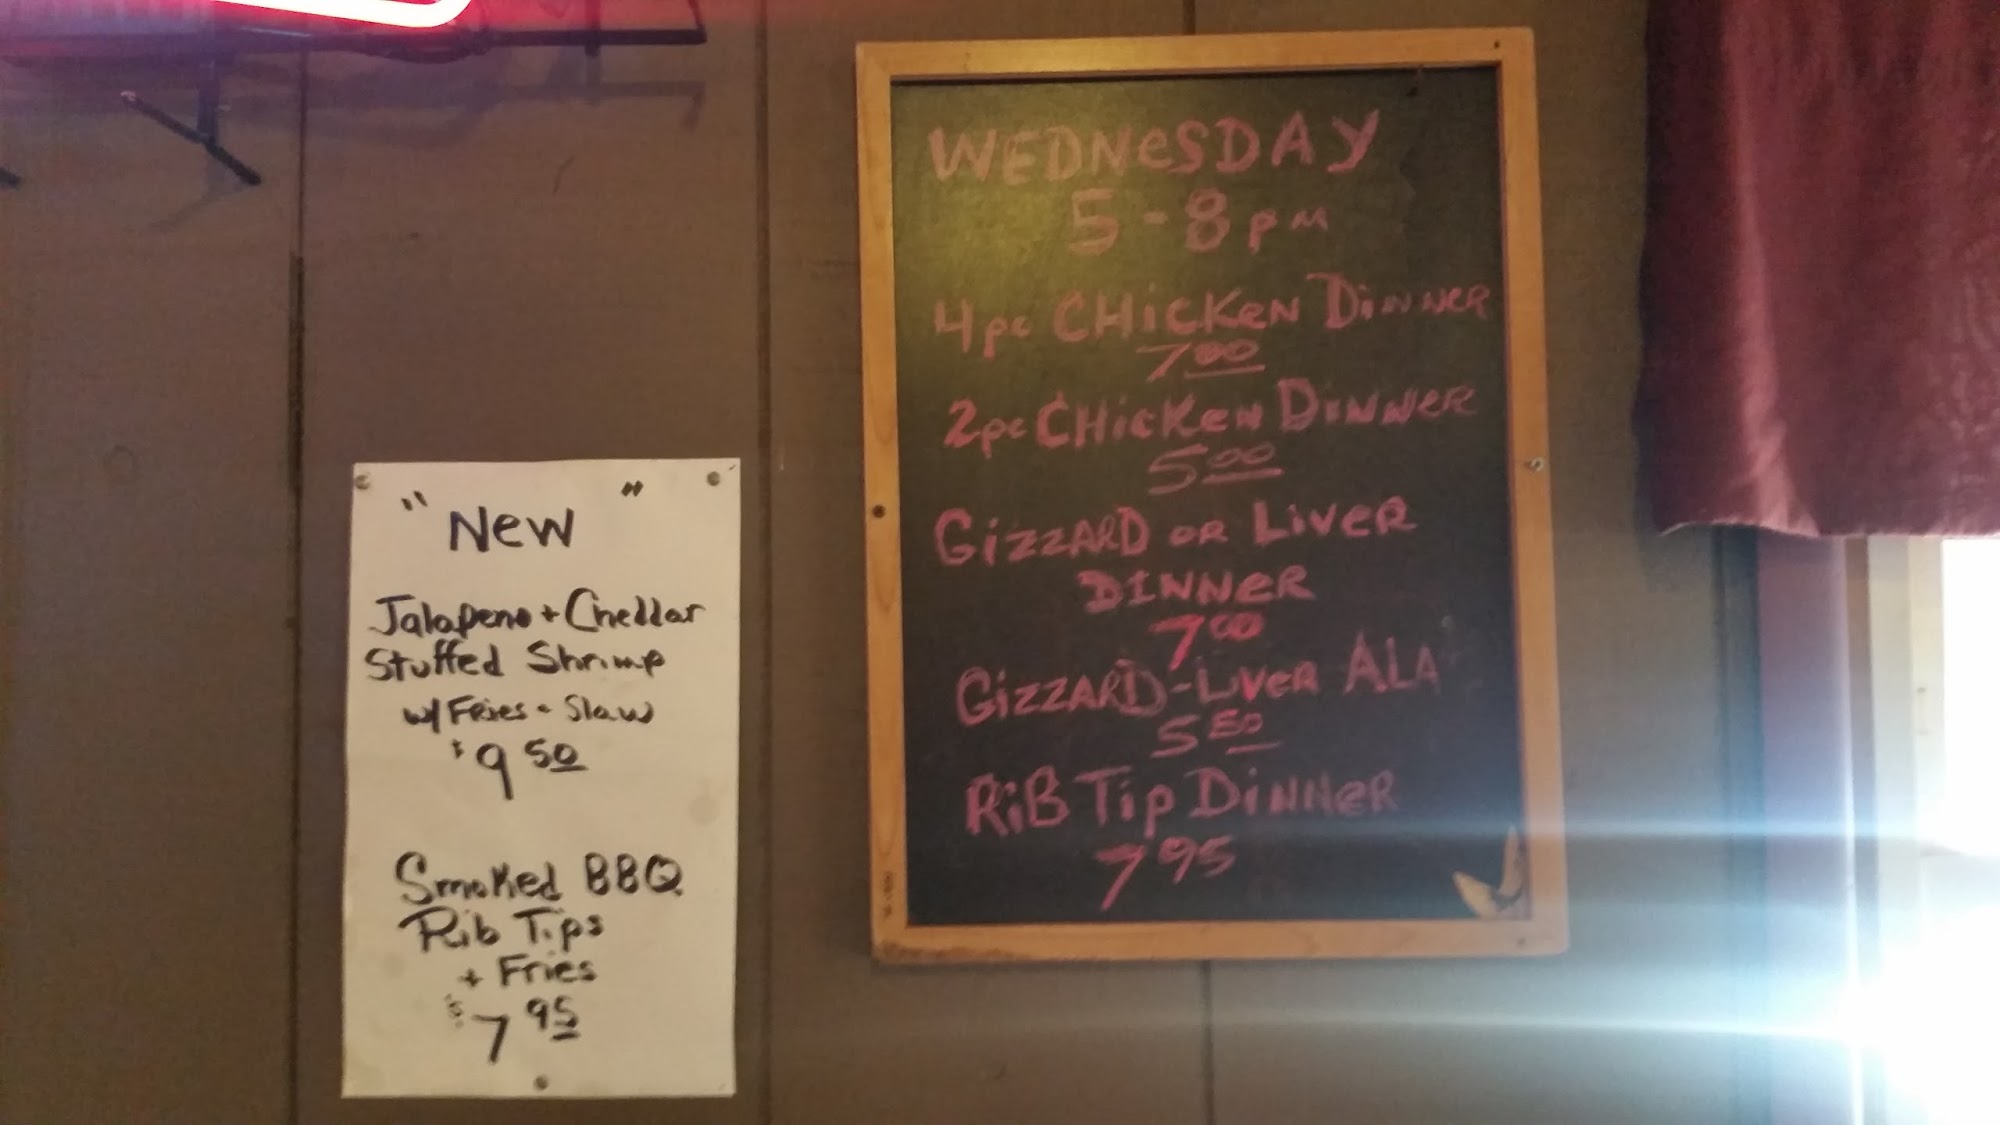 " New "
Jalapeno + Cheddar
Stuffed Shrimp
w/ Fries + Slaw
$9.50
Smoked BBQ
Rib Tips
+ Fries
$7.95
WEDNeSDAY
5-8pm
4pc CHicKeN DiNNeR
7.00
2pc CHicKeN DiNNeR
5.00
GizzARD oR LiveR
DINNeR
7.00
GizzARD-LiveR ALA
5.50
RiB Tip DiNNeR
7.95